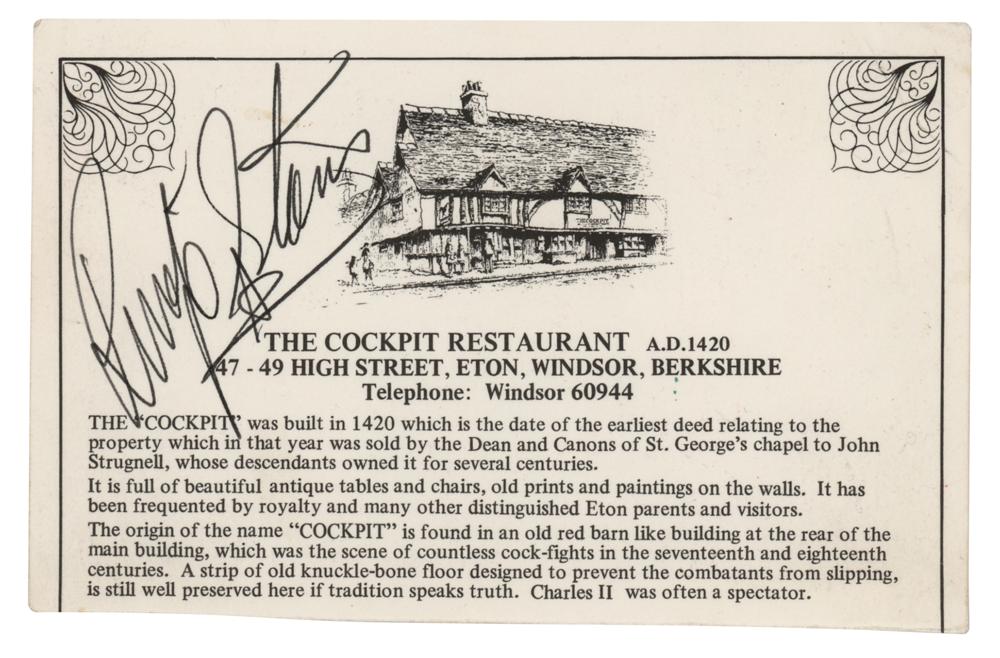 Ringo Starr
THE COCKPIT
THE COCKPIT RESTAURANT A.D.1420
47 - 49 HIGH STREET, ETON, WINDSOR, BERKSHIRE
Telephone: Windsor 60944
THE “COCKPIT” was built in 1420 which is the date of the earliest deed relating to the
property which in that year was sold by the Dean and Canons of St. George's chapel to John
Strugnell, whose descendants owned it for several centuries.
It is full of beautiful antique tables and chairs, old prints and paintings on the walls. It has
been frequented by royalty and many other distinguished Eton parents and visitors.
The origin of the name “COCKPIT” is found in an old red barn like building at the rear of the
main building, which was the scene of countless cock-fights in the seventeenth and eighteenth
centuries. A strip of old knuckle-bone floor designed to prevent the combatants from slipping,
is still well preserved here if tradition speaks truth. Charles II was often a spectator.